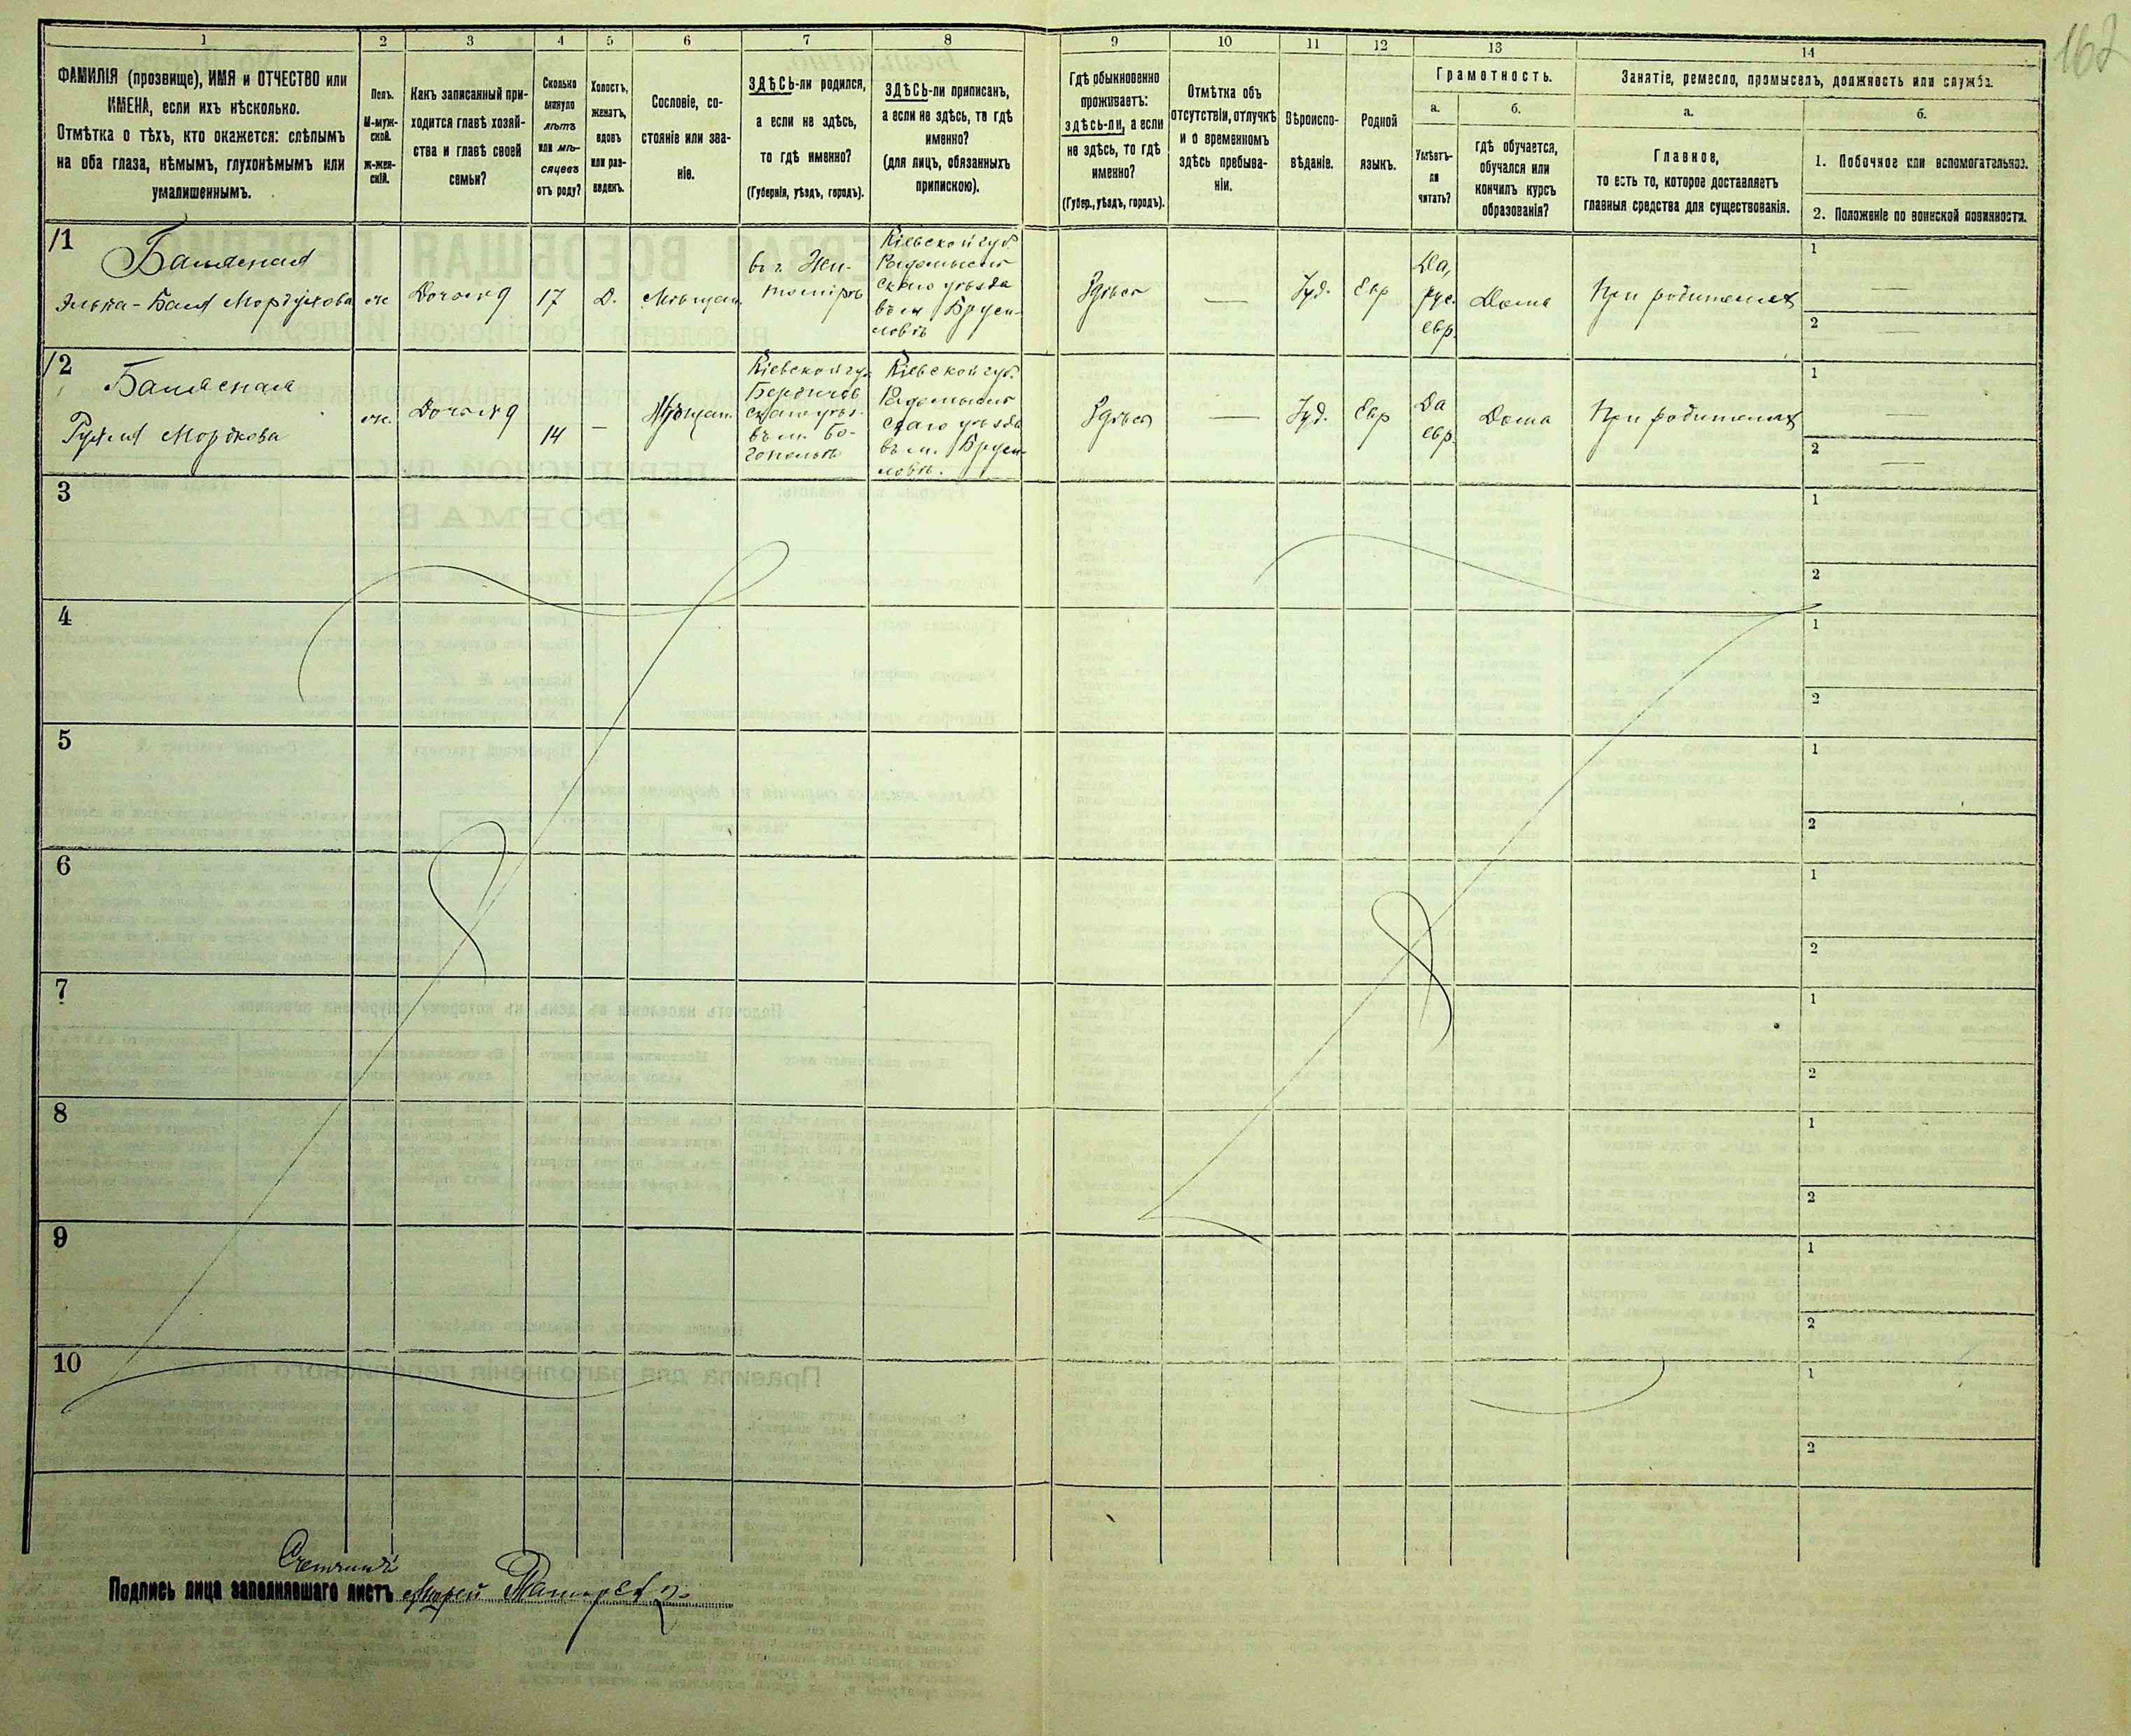 162
1 2 3 4 5 6 7 8 9 10 11 12 13 14
ФАМИЛІЯ (прозвище), ИМЯ и ОТЧЕСТВО или
ИМЕНА, если ихъ нѣсколько.
Отмѣтка о тѣхъ, кто окажется: слѣпымъ
на оба глаза, нѣмымъ, глухонѣмымъ или
умалишеннымъ.
Полъ.
М-муж-
ской.
Ж-жен-
скій.
Какъ записанный при-
ходится главѣ хозяй-
ства и главѣ своей
семьи?
Сколько
минуло
лѣтъ
или мѣ-
сяцевъ
отъ роду?
Холостъ,
женатъ,
вдовъ
или раз-
веденъ.
Сословіе, со-
стояніе или зва-
ніе.
ЗДѢСЬ-ли родился,
а если не здѣсь,
то гдѣ именно?
(Губернія, уѣздъ, городъ).
ЗДѢСЬ-ли приписанъ,
а если не здѣсь, то гдѣ
именно?
(для лицъ, обязанныхъ
припискою).
Гдѣ обыкновенно
проживаетъ:
здѣсь-ли, а если
не здѣсь, то гдѣ
именно?
(Губер., уѣздъ, городъ).
Отмѣтка объ
отсутствіи, отлучкѣ
и о временномъ
здѣсь пребыва-
ніи.
Вѣроиспо-
вѣданіе.
Родной
языкъ.
Грамотность.
а.
Умѣетъ-
ли
читать?
б.
гдѣ обучается,
обучался или
кончилъ курсъ
образованія?
Занятіе, ремесло, промыселъ, должность или служба.
а.
Главное,
то есть то, которое доставляетъ
главныя средства для существованія.
б.
1. Побочное или вспомогательное.
2. Положеніе по воинской повинности.
1
Эльта-Бася Мордухова
ж
Дочь
17
Д.
Мѣщан.
въ г. Жи-
томірѣ
Кіевской губ.
Радомысль
скаго уѣзда
въ м. Бруси-
ловѣ
Здѣсь
—
Іуд.
Евр
Да,
рус.
евр.
Дома
При родителях
1
—
2
—
2
Мордкова
ж.
Дочь
14
—
Мѣщан.
Кіевской губ.
Бердичев
скаго уѣз.
въ м.
Кіевской губ.
Радомысль
скаго уѣзда
въ м. Бруси-
ловѣ.
Здѣсь
—
Іуд.
Евр
Да
евр.
Дома
При родителях
1
—
2
—
3
1
2
4
1
2
5
1
2
6
1
2
7
1
2
8
1
2
9
1
2
10
1
2
Счетчикъ
Подпись лица заполнявшаго листъ